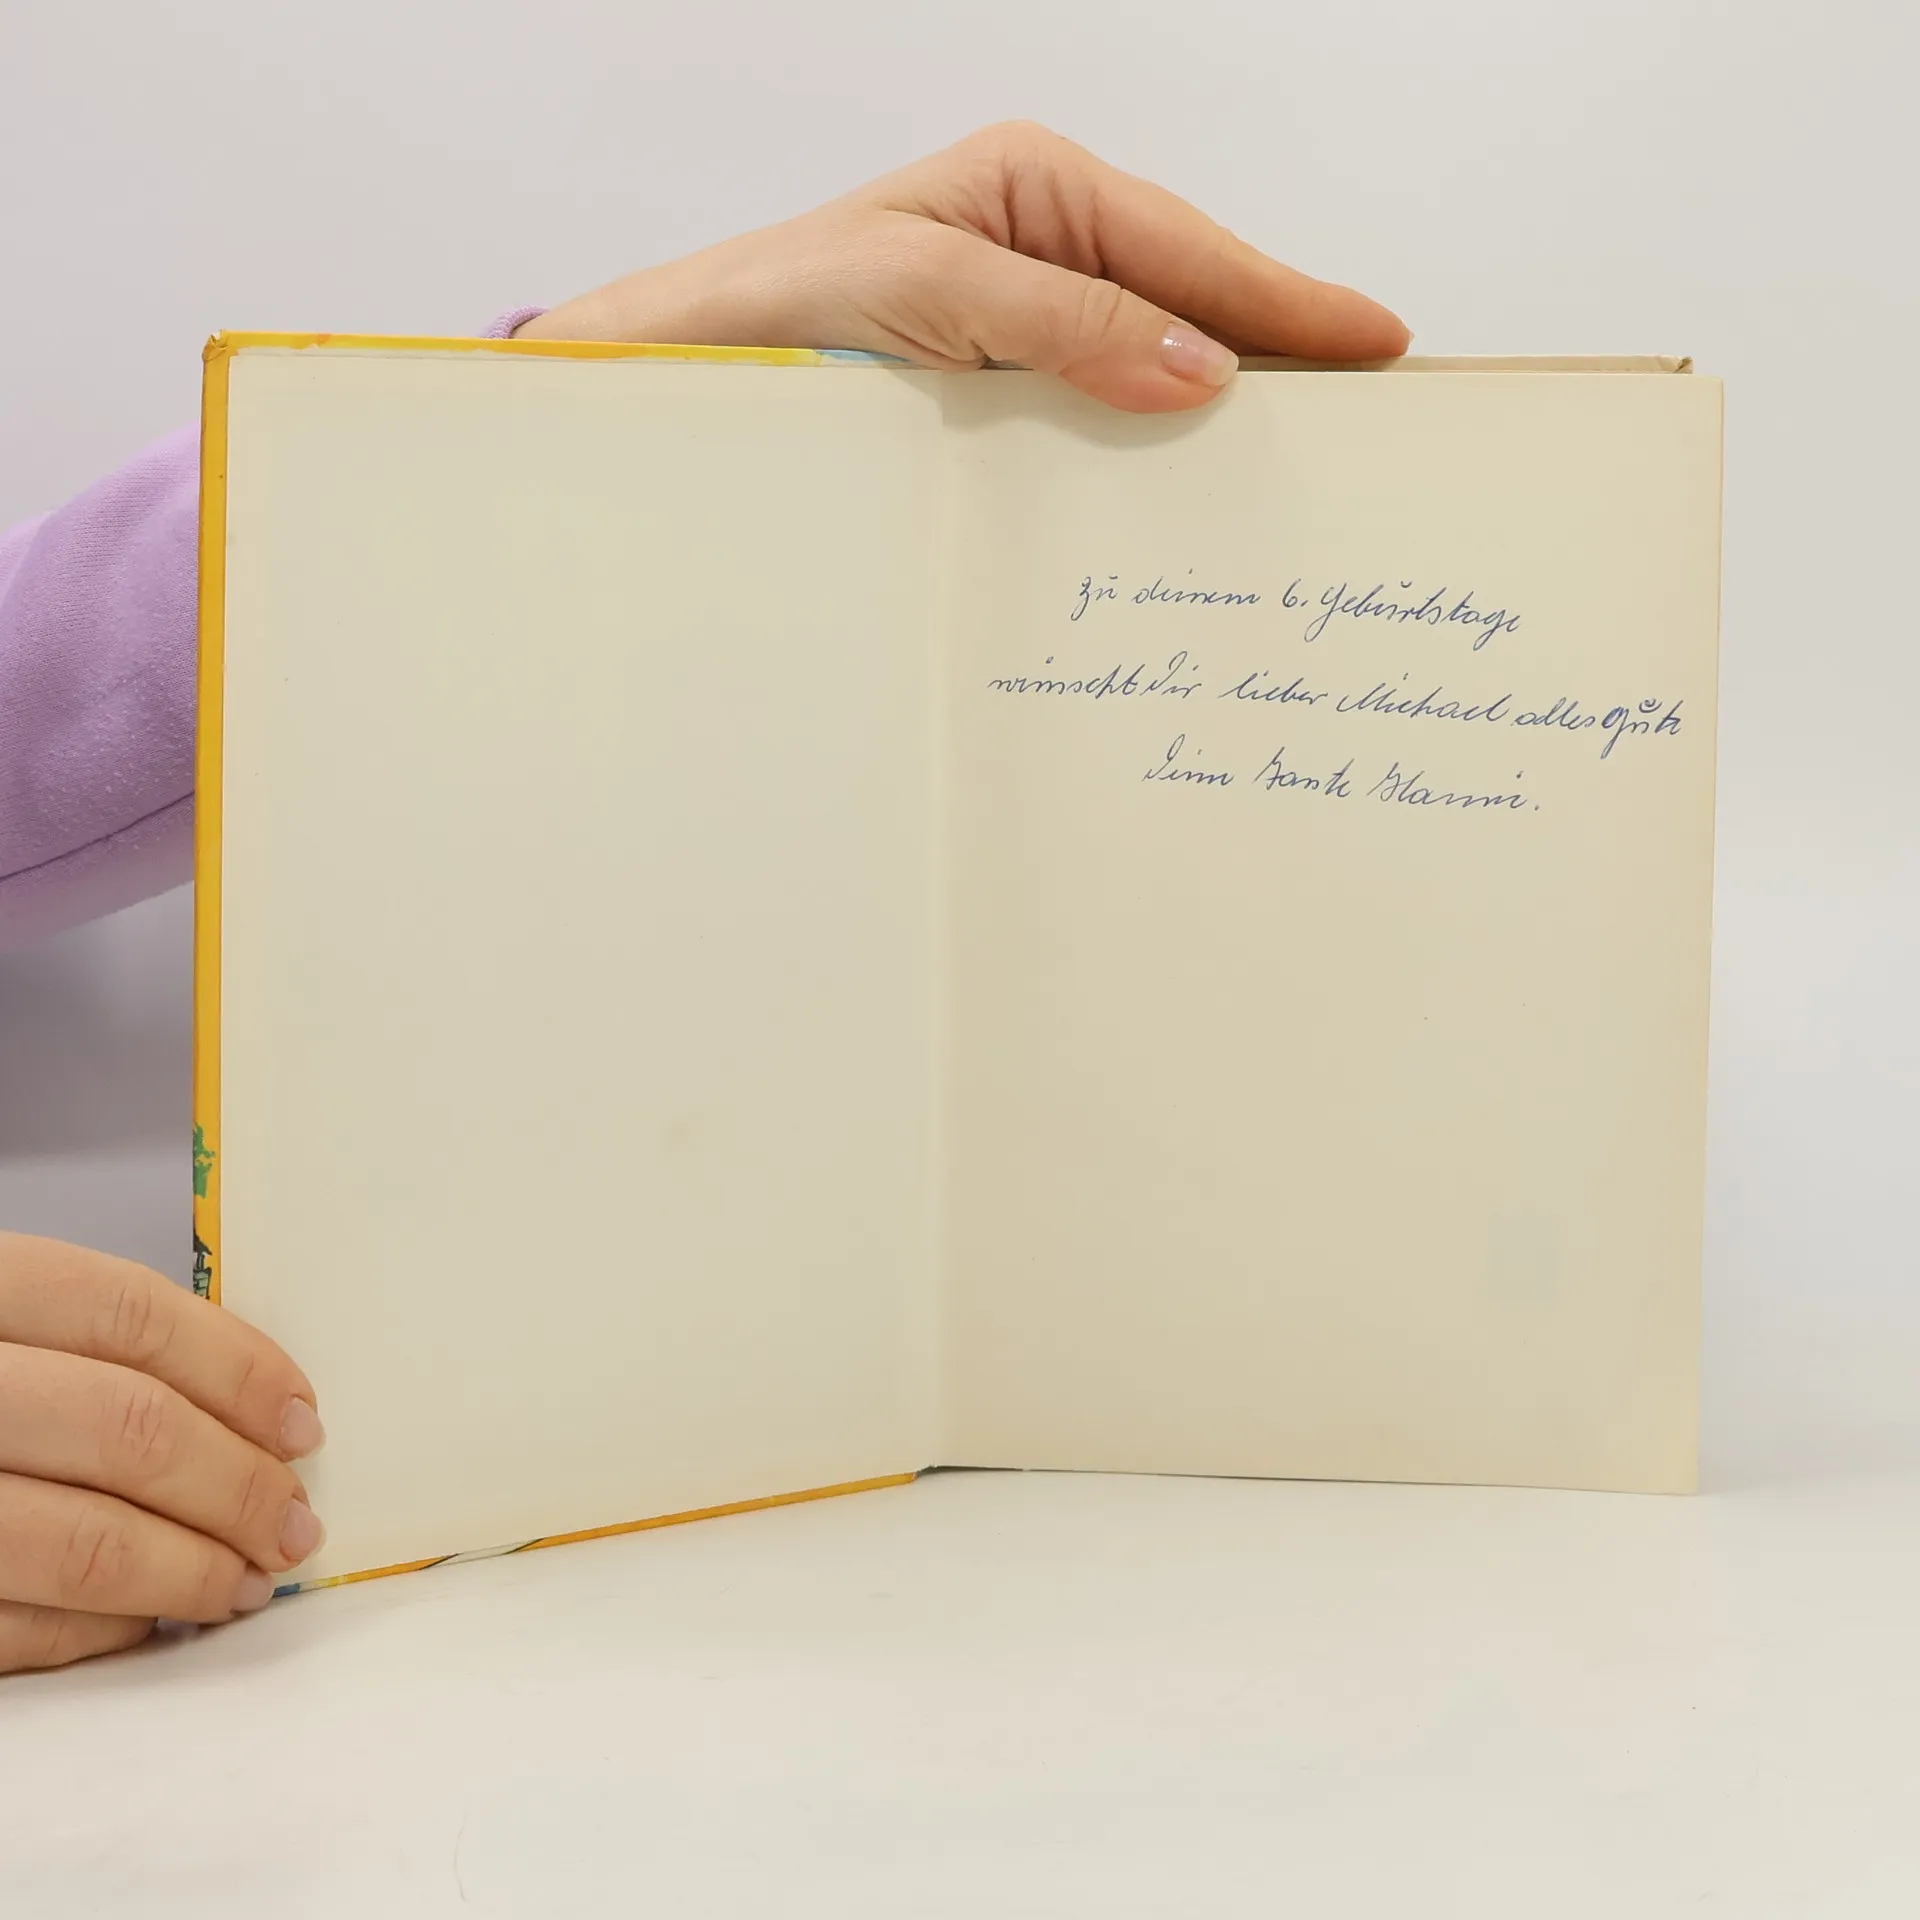 Zu deinem 6. Geburtstage
wünscht Dir lieber Michael alles Gute
Deine Tante Hanni.